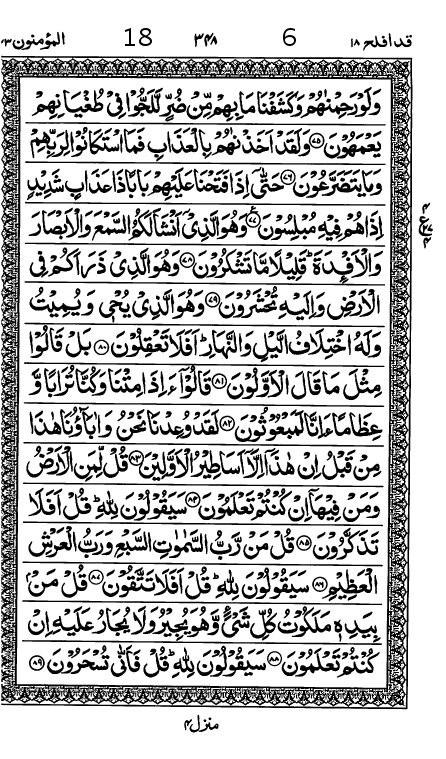 قد افلح ١٨ ٣٤٨ المؤمنون ٢٣
18 6
وَلَوْ رَحِمْنٰهُمْ وَكَشَفْنَا مَا بِهِمْ مِّنْ ضُرٍّ لَّلَجُّوْا فِیْ طُغْیَانِهِمْ
یَعْمَهُوْنَ ﴿۷۵﴾ وَلَقَدْ اَخَذْنٰهُمْ بِالْعَذَابِ فَمَا اسْتَكَانُوْا لِرَبِّهِمْ
وَمَا یَتَضَرَّعُوْنَ ﴿۷۶﴾ حَتّٰۤی اِذَا فَتَحْنَا عَلَیْهِمْ بَابًا ذَا عَذَابٍ شَدِیْدٍ
اِذَا هُمْ فِیْهِ مُبْلِسُوْنَ ﴿۷۷﴾ وَهُوَ الَّذِیْۤ اَنْشَاَ لَكُمُ السَّمْعَ وَالْاَبْصَارَ
وَالْاَفْـِٕدَةَ ؕ قَلِیْلًا مَّا تَشْكُرُوْنَ ﴿۷۸﴾ وَهُوَ الَّذِیْ ذَرَاَكُمْ فِی
الْاَرْضِ وَاِلَیْهِ تُحْشَرُوْنَ ﴿۷۹﴾ وَهُوَ الَّذِیْ یُحْیٖ وَیُمِیْتُ
وَلَهُ اخْتِلَافُ الَّیْلِ وَالنَّهَارِ ؕ اَفَلَا تَعْقِلُوْنَ ﴿۸۰﴾ بَلْ قَالُوْا
مِثْلَ مَا قَالَ الْاَوَّلُوْنَ ﴿۸۱﴾ قَالُوْۤا ءَاِذَا مِتْنَا وَكُنَّا تُرَابًا وَّ
عِظَامًا ءَاِنَّا لَمَبْعُوْثُوْنَ ﴿۸۲﴾ لَقَدْ وُعِدْنَا نَحْنُ وَاٰبَآؤُنَا هٰذَا
مِنْ قَبْلُ اِنْ هٰذَاۤ اِلَّاۤ اَسَاطِیْرُ الْاَوَّلِیْنَ ﴿۸۳﴾ قُلْ لِّمَنِ الْاَرْضُ
وَمَنْ فِیْهَاۤ اِنْ كُنْتُمْ تَعْلَمُوْنَ ﴿۸۴﴾ سَیَقُوْلُوْنَ لِلّٰهِ ؕ قُلْ اَفَلَا
تَذَكَّرُوْنَ ﴿۸۵﴾ قُلْ مَنْ رَّبُّ السَّمٰوٰتِ السَّبْعِ وَرَبُّ الْعَرْشِ
الْعَظِیْمِ ﴿۸۶﴾ سَیَقُوْلُوْنَ لِلّٰهِ ؕ قُلْ اَفَلَا تَتَّقُوْنَ ﴿۸۷﴾ قُلْ مَنْۢ
بِیَدِهٖ مَلَكُوْتُ كُلِّ شَیْءٍ وَّهُوَ یُجِیْرُ وَلَا یُجَارُ عَلَیْهِ اِنْ
كُنْتُمْ تَعْلَمُوْنَ ﴿۸۸﴾ سَیَقُوْلُوْنَ لِلّٰهِ ؕ قُلْ فَاَنّٰی تُسْحَرُوْنَ ﴿۸۹﴾
منزل ۴